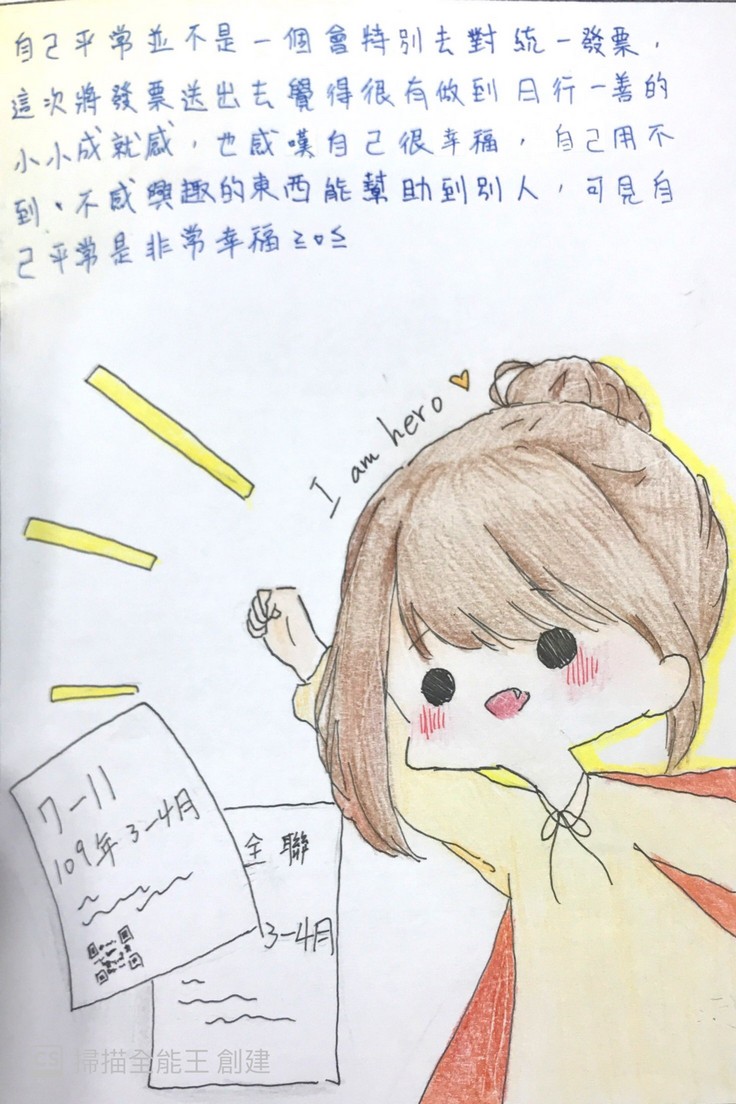 自己平常並不是一個會特別去對統一發票，
這次將發票送出去覺得很有做到日行一善的
小小成就感，也感嘆自己很幸福，自己用不
到、不感興趣的東西能幫助到別人，可見自
己平常是非常幸福≥o≤
I am hero
7-11
109年3-4月
全聯
3-4月
CS 掃描全能王 創建